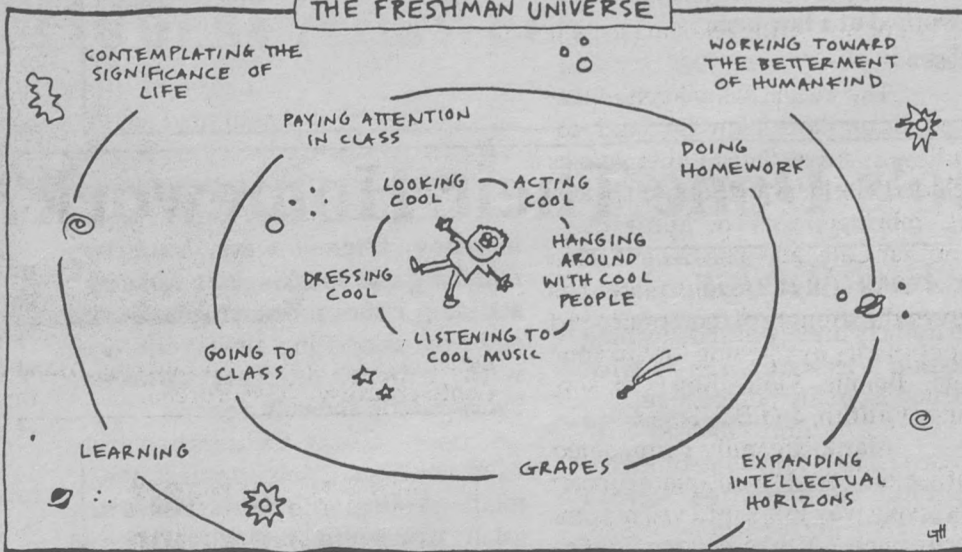 THE FRESHMAN UNIVERSE
CONTEMPLATING THE
SIGNIFICANCE OF
LIFE
WORKING TOWARD
THE BETTERMENT
OF HUMANKIND
PAYING ATTENTION
IN CLASS
DOING
HOMEWORK
LOOKING
COOL
ACTING
COOL
DRESSING
COOL
HANGING
AROUND
WITH COOL
PEOPLE
LISTENING TO
COOL MUSIC
GOING TO
CLASS
GRADES
LEARNING
EXPANDING
INTELLECTUAL
HORIZONS